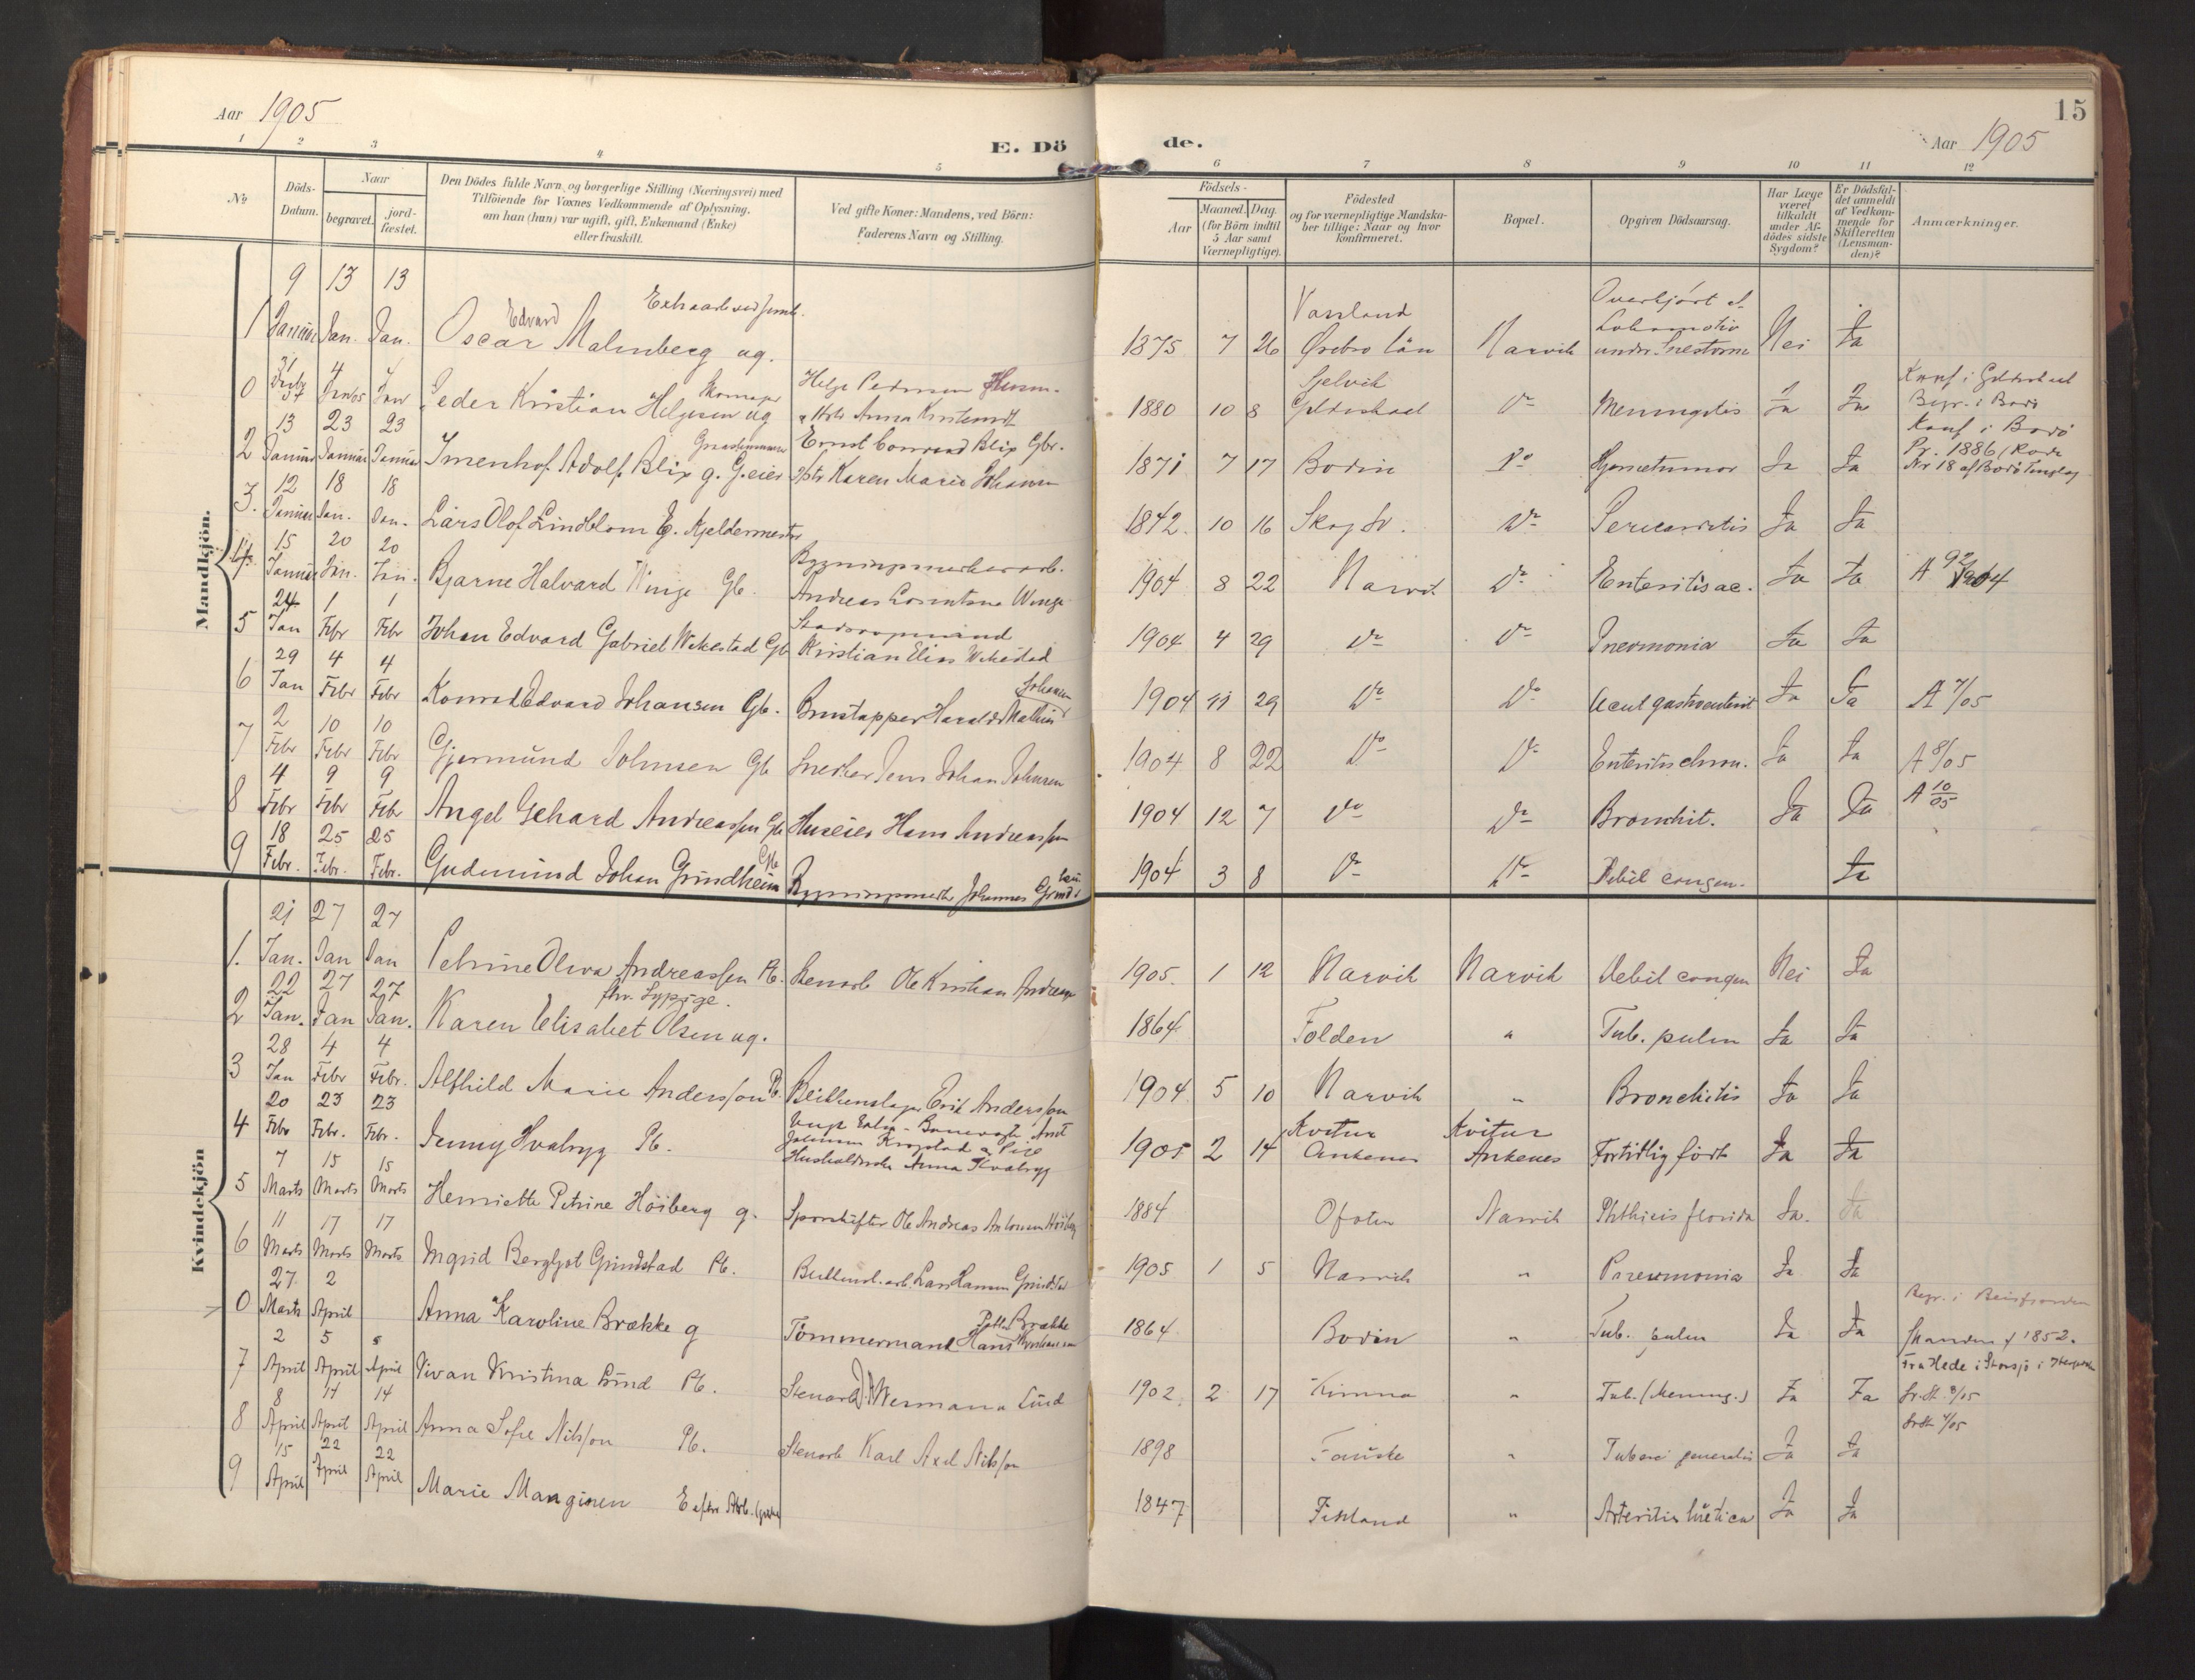 Aar 1905
E. Dö de.
15
Aar 1905
1 2 3 4 5 6 7 8 9 10 11 12
No
Döds-Datum.
Naar
begravet.
jord-fæstet.
Den Dödes fulde Navn og borgerlige Stilling (Næringsvei) med
Tilföiende for Voxnes Vedkommende af Oplysning,
om han (hun) var ugift, gift, Enkemand (Enke)
eller fraskilt.
Ved gifte Koner: Mandens, ved Börn:
Faderens Navn og Stilling.
Födsels-
Aar
Maaned. Dag.
(for Börn indtil
5 Aar samt
Værnepligtige).
Födested
og for værnepligtige Mandska-
ber tillige: Naar og hvor
konfirmeret.
Bopæl.
Opgiven Dödsaarsag.
Har Læge
været
tilkaldt
under Af-
dödes sidste
Sygdom?
Er Dödsfal-
det anmeldt
af Vedkom-
mende for
Skifteretten
(Lensman-
den)?
Anmærkninger.
Mandkjön.
1 9 Januar 13 Jan. 13 Jan. Oscar Edvard Malmberg ug. 1875 7 26 Örebro län Narvik Overkjört af Lokomotiv under Snestorm Nei Ja
0 31 4 Jan 05 4 Jan Peder Kristian Helgesen ug Helge Pedersen 1880 10 8 Gildeskaal Do Meningitis Ja Ja Konf i Gildeskaal Begr. i Bodö
2 13 Januar 23 Januar 23 Januar Imenhof Adolf Blix g. G.eier Ernst Conrad Blix Gbr. Hstr Karen Marie Johansen 1871 7 17 Bodin Do Hjernetumor Ja Ja Konf i Bodö Pr. 1886 Nr 18 af Bodö
3. 12 Januar 18 Jan. 18 Jan. Lars Olof Lindblom E. Kjeldermester 1842. 10 16 Skog Sv. Do Pericarditis Ja Ja
4 15 Januar 20 Jan. 20 Jan. Bjarne Halvard Winge Gb. Andreas Lorentsen Winge 1904 8 22 Narvik Do Enteritis ac. Ja Ja A 92/1904
5 24 Jan 1 Febr 1 Febr Johan Edvard Gabriel Wikestad Gb Kristian Elias Wikestad 1904 4 29 Do Do Pneumonia Ja Ja
6 29 Jan 4 Febr 4 Febr Konrad Edvard Johansen Gb. Harald Mathias Johansen 1904 11 29 Do Do Acut gastroenterit Ja Ja A 7/05
7 2 Febr 10 Febr 10 Febr Gjermund Johnsen Gb Snedker Jens Johan Johnsen 1904 8 22 Do Do Enteritis chron. Ja Ja A 8/05
8 4 Febr 9 Febr 9 Febr Angel Gehard Andreassen Gb Huseier Hans Andreassen 1904 12 7 Do Do Bronchit. Ja Ja A 10/05
9 18 Febr. 25 Febr. 25 Febr. Gudmund Johan Grindheim Gb Johannes Grindheim 1904 3 8 Do Do Debil congen. Ja
Kvindekjön
1. 21 Jan. 27 Jan 27 Jan Petrine Oliva Andreassen Pb. Stenarb Ole Kristian Andreassen 1905. 1 12 Narvik Narvik Debil congen Nei Ja
2 22 Jan. 27 Jan 27 Jan. Karen Elisabet Olsen ug. fhv. Sypige. 1864 Folden " Tub. pulm Ja Ja
3 28 Jan 4 Febr 4 Febr. Alfhild Marie Andersson Pb. Erik Andersson 1904 5 10 Narvik " Bronchitis Ja Ja
4 20 Febr 23 Febr. 23 Febr. Jenny Hvalryg Pb. Johnsen Krogstad Husholderske Anna Hvalryg 1905 2 14 Ankenes Ankenes Fortidlig födt Ja Ja
5 7 Marts 15 Marts 15 Marts Henriette Petrine Höiberg g. Sporskifter Ole Andreas Antonsen Höiberg 1884 Ofoten Narvik Phthisis florida Ja. Ja
6 11 Marts 17 Marts 17 Marts Ingrid Bergljot Grindstad Pb. Lars Larsen Grindstad 1905 1 5 Narvik " Pneumonia Ja Ja
0 27 Marts 2 April Anna Karoline Brække g Tömmermand Hans Brække 1864 Bodin " Tub. pulm Ja Ja Begr. i Beisfjorden Manden f 1852.
7 2 April 5 April 5 April Vivan Kristina Lund Pb. Stenarb Wermann Lund 1902. 2 17 Kiruna " Tub. (Mening.) Ja Ja Fra Hede i
8 8 April 14 April 14 April Anna Sofie Nilsson Pb. Stenarb Karl Axel Nilsson 1898 Fauske " Ja Ja
9 15 April 22 April 22 April Marie Manginen E 1847 Finland " Arteritis luetica Ja Ja